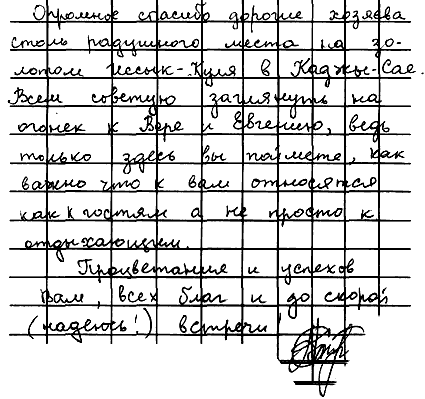 Огромное спасибо дорогие хозяева
столь радушного места на зо-
лотом Иссык-Куля в Каджы-Сае.
Всем советую заглянуть на
огонек к Вере и Евгению, ведь
только здесь вы поймете, как
важно что к вам относятся
как к гостям а не просто к
отдыхающим.
Процветание и успехов
Вам, всех благ и до скорой
(надеюсь!) встречи!